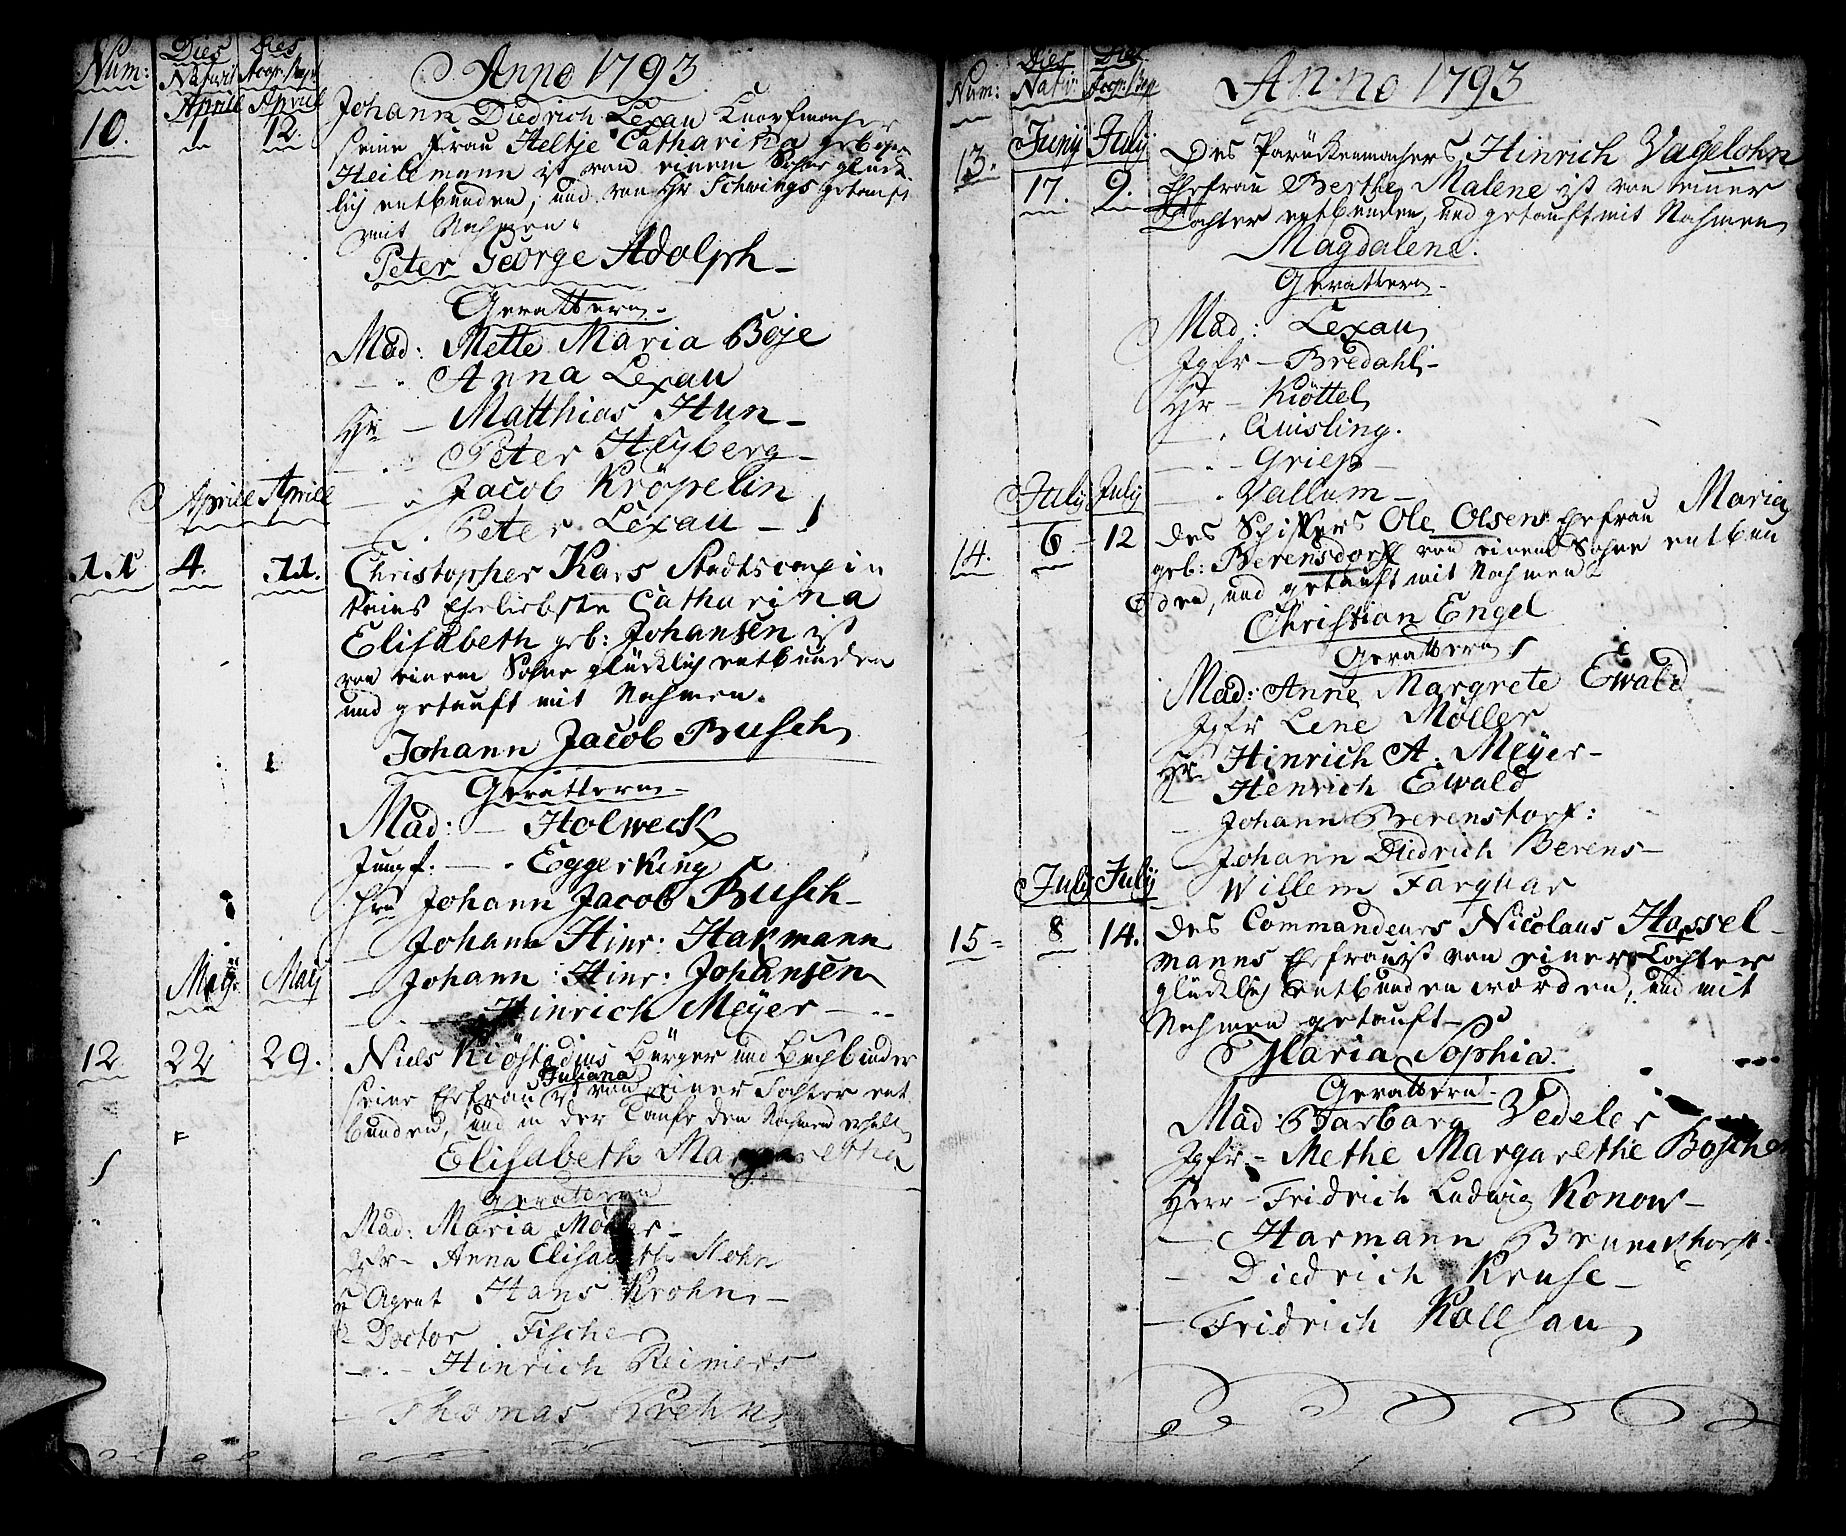 Num: Dies Nativit Dies Anno 1793
Aprill Aprill
10. 1 12. Johann Diedrich Lexau Knopfmacher
seine Frau Heltje Catharina gebohrn
Heilemann ist von einem Sohne glück
lich entbunden, und von Hr Schwings getauft
mit Nahmen
Peter George Adolph
Gevattern
Mad: Mette Maria Böje
Anna Lexau
Hr Matthias Hun
Peter Heyberg
Jacob Kröpelin
Aprill Aprill
Peter Lexau
11 4. 11. Christopher Kars
Ehrliebste Catharina
Elisabeth geb: Johansen ist
von einem Sohne glücklich entbunden
und getauft mit Nahmen.
Johann Jacob Busch
Gevattern
Mad: Holweck
Jungf. Eggerking
Hrn Johann Jacob Busch
Johann Hinr: Harmann
May May
Johann Hinr: Johansen
Hinrich Meyer
12 22 29. Niels Kiöstadius Bürger und Buchbinder
Juliana
seine Ehefrau ist von einer Tochter ent
bunden, und in der Taufe den Nahmen erhalt
Elisabeth Margaretha
Gevattern
Mad: Maria Möller
Jgfr Anna Elisabeth Mohn
Agent Hans Krohn
Doctor Fischer
Hinrich Reimers
Thomas Prehn
Num: Dies Nativ: Dies Anno 1793
Juny July
13. 17. 9. Des Parückenmachers Hinrich Vagelohn
Ehefrau Berthe Malene ist von einer
Tochter entbunden, und getauft mit Nahmen
Magdalene
Gevattern
Mad: Lexau
Jgfr Bredahl
Hr Kiöttel
Quisling.
Griep
July July
Vallum
14. 6 12 des Schiffers Ole Olsens Ehefrau Maria
geb: Berensdorf von einem Sohne entbun
den, und getauft mit Nahmen
Christian Engel
Gevattern
Mad: Anne Margrete Ewald
Jgfr Lene Möller
Hr Hinrich A. Meyer
Henrich Ewald
Johann Berenstorf:
Johann Diedrich Berens
July July
Willem Farquar
15 8 14. des Commandeurs Nicolaus Hassel
manns Ehefrau ist von einer Tochter
glücklich entbunden worden, und mit
Nahmen getauft
Maria Sophia
Gevattern
Mad: Barbara Vedeler
Jgfr Methe Margarethe Böscher
Herr Fridrich Ludwig Konow
Harmann Brunckhorst
Diedrich Kruse
Fridrich Kollsau